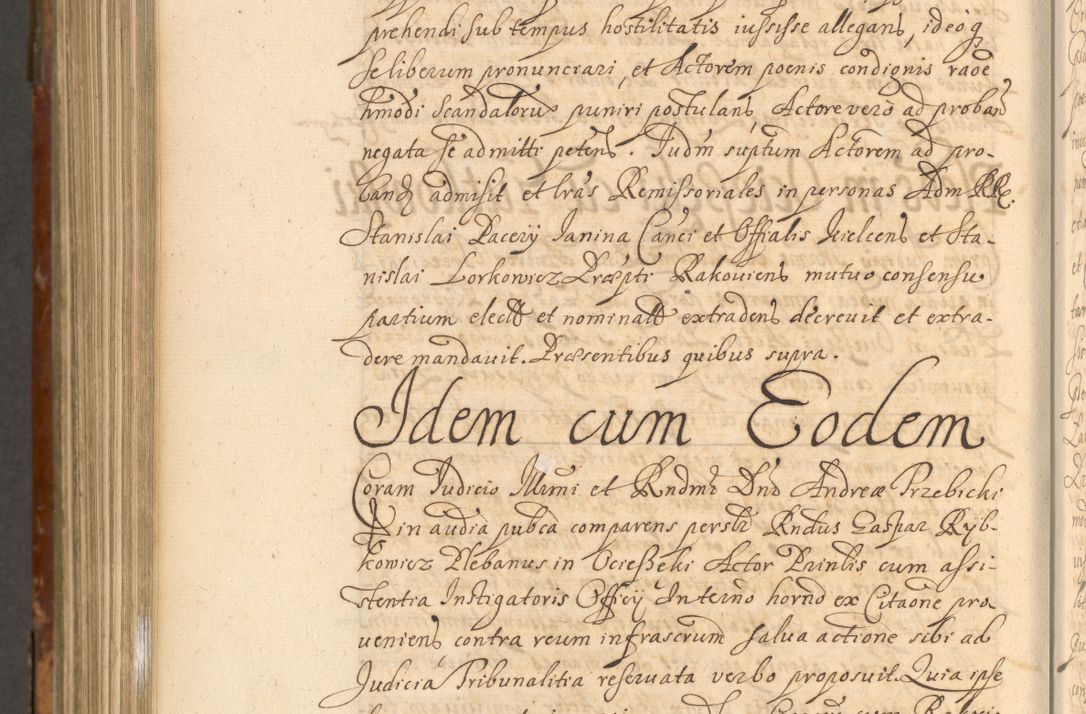 prehendi sub tempus hostilitatis iussisse allegans, ideoq
se liberum pronunciari, et Actorem poenis condignis raõe
hmõdi scandalorũ puniri postulans Actore verò ad proband
negata se admitti petens. Judm suptum Actorem ad pro-
band admisit et lras Remissoriales in personas Adm RR.
Stanislai Pacezy Janina Canci et Offialis Kielcens et Sta-
nislai Lorkowicz Præpti Rakoviens mutuo consensu
partium elect et nominat extradens decrevit et extra-
dere mandavit. Præsentibus quibus supra.
Idem cum Eodem
Coram Judicio Illmi et Rndmi Dni Andreæ Trzebicki
in audia pubca comparens persltr Rndus Caspar Ryb-
kowicz Plebanus in Ocieszeki Actor Prinlis cum assi-
stentia Instigatoris Officij Interno horno ex Citaõne pro
veniens contra reum infrascrum salva actione sibi ad
Judicia Tribunalitia reservata verbo proposuit. Quia ipse